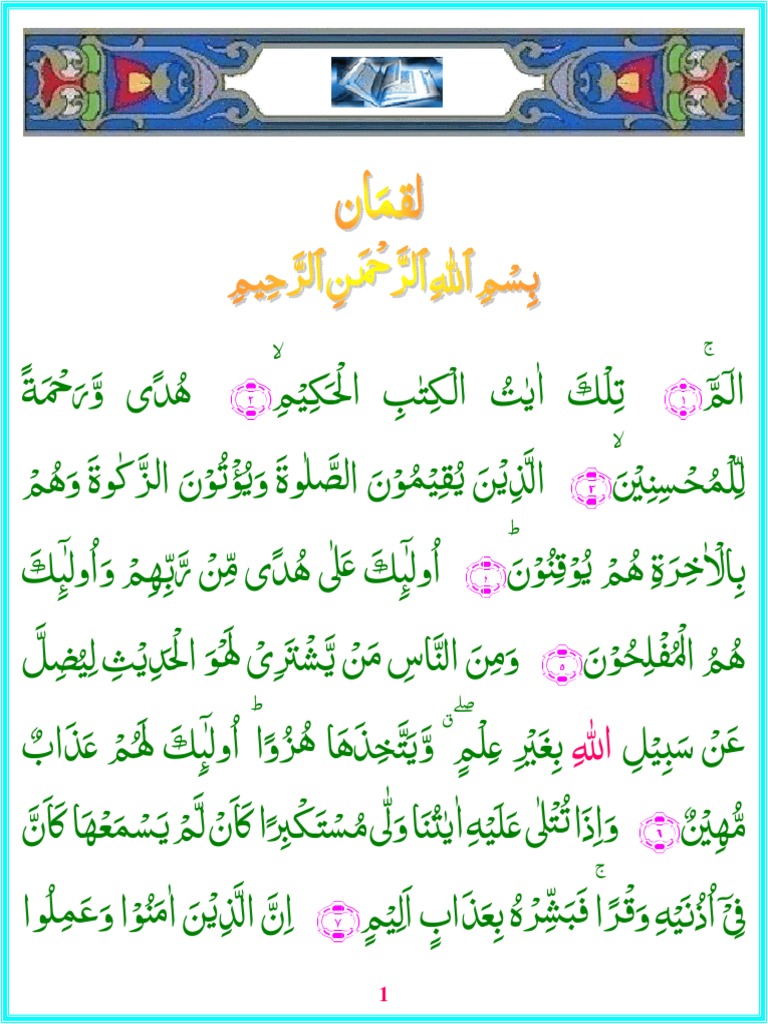 لقمَان
بِسْمِ ٱللهِ ٱلرَّحْمَٰنِ ٱلرَّحِيمِ
الٓمّٓ ۚ ﴿۱﴾ تِلْكَ اٰیٰتُ الْكِتٰبِ الْحَكِیْمِ ۙ ﴿۲﴾ هُدًی وَّرَحْمَةً
لِّلْمُحْسِنِیْنَ ۙ ﴿۳﴾ الَّذِیْنَ یُقِیْمُوْنَ الصَّلٰوةَ وَیُؤْتُوْنَ الزَّكٰوةَ وَهُمْ
بِالْاٰخِرَةِ هُمْ یُوْقِنُوْنَ ؕ ﴿۴﴾ اُولٰٓئِكَ عَلٰی هُدًی مِّنْ رَّبِّهِمْ وَاُولٰٓئِكَ
هُمُ الْمُفْلِحُوْنَ ﴿۵﴾ وَمِنَ النَّاسِ مَنْ یَّشْتَرِیْ لَهْوَ الْحَدِیْثِ لِیُضِلَّ
عَنْ سَبِیْلِ اللهِ بِغَیْرِ عِلْمٍ ۖۗ وَّیَتَّخِذَهَا هُزُوًا ؕ اُولٰٓئِكَ لَهُمْ عَذَابٌ
مُّهِیْنٌ ﴿۶﴾ وَاِذَا تُتْلٰی عَلَیْهِ اٰیٰتُنَا وَلّٰی مُسْتَكْبِرًا كَاَنْ لَّمْ یَسْمَعْهَا كَاَنَّ
فِیْۤ اُذُنَیْهِ وَقْرًا ۚ فَبَشِّرْهُ بِعَذَابٍ اَلِیْمٍ ﴿۷﴾ اِنَّ الَّذِیْنَ اٰمَنُوْا وَعَمِلُوا
1